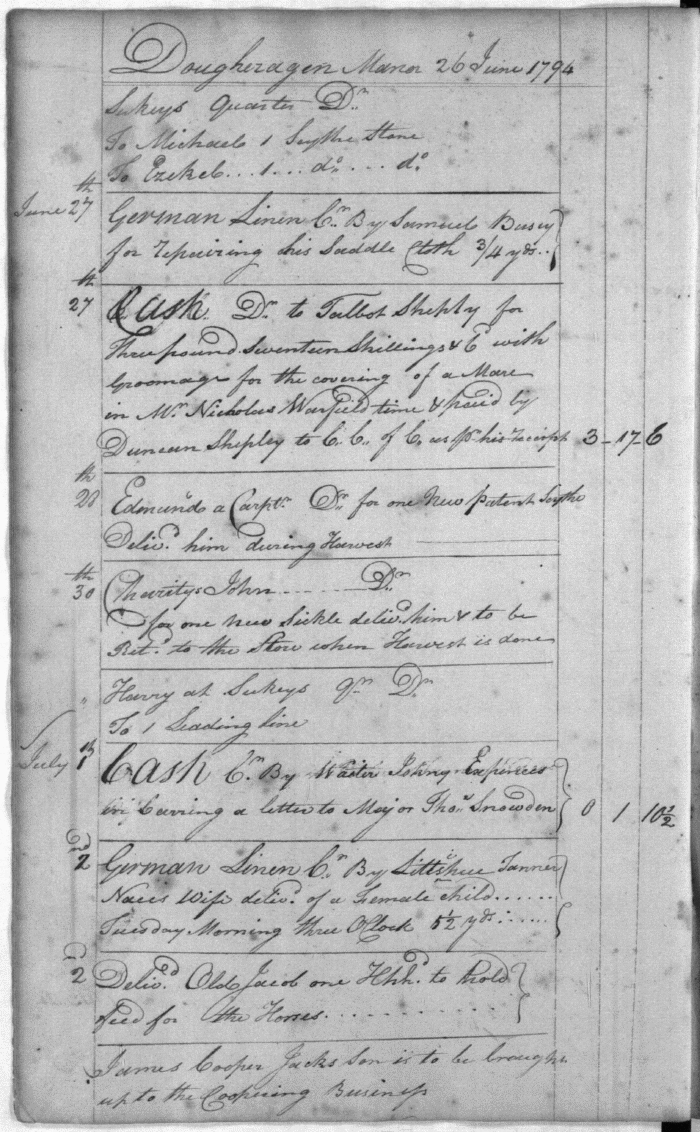 Dougheragen Manor 26 June 1794
Sukeys Quarter Dr.
To Michael 1 Sythe Stone
To Ezekel... 1... do... do
June 27th German Linen Cr. By Samuel Busey
for repairing his Saddle Cloth 3/4 yds..
27th Cash Dr. to Talbot Sheply for
three pound Seventeen Shillings & 6 with
Groomage for the covering of a Mare
in Mr. Nicholas Warfield time & paid by
Duncan Shepley to C. C. of C. as pr. his receipt 3-17-6
28th Edmund a Carptr. Dr. for one New patent Sythe
Delivd. him during Harvest
30th Charitys John Dr.
for one new Sickle delivd. him & to be
Retd. to the Store when Harvest is done
" Harry at Sukeys Qr. Dr.
To 1 Leading line
July 1th Cash Cr. By Expences
in Carring a letter to Major Thos. Snowden 0 1 10½
2nd German Linen Cr. By Tanner
Naces Wife delivd. of a Female child......
Tuesday Morning three OClock 5½ yds:.....
2d Delivd. Old Jacob one Hhd. to hold
feed for the Horses..........
James Cooper Jacks Son is to be brought
up to the Coopering Business